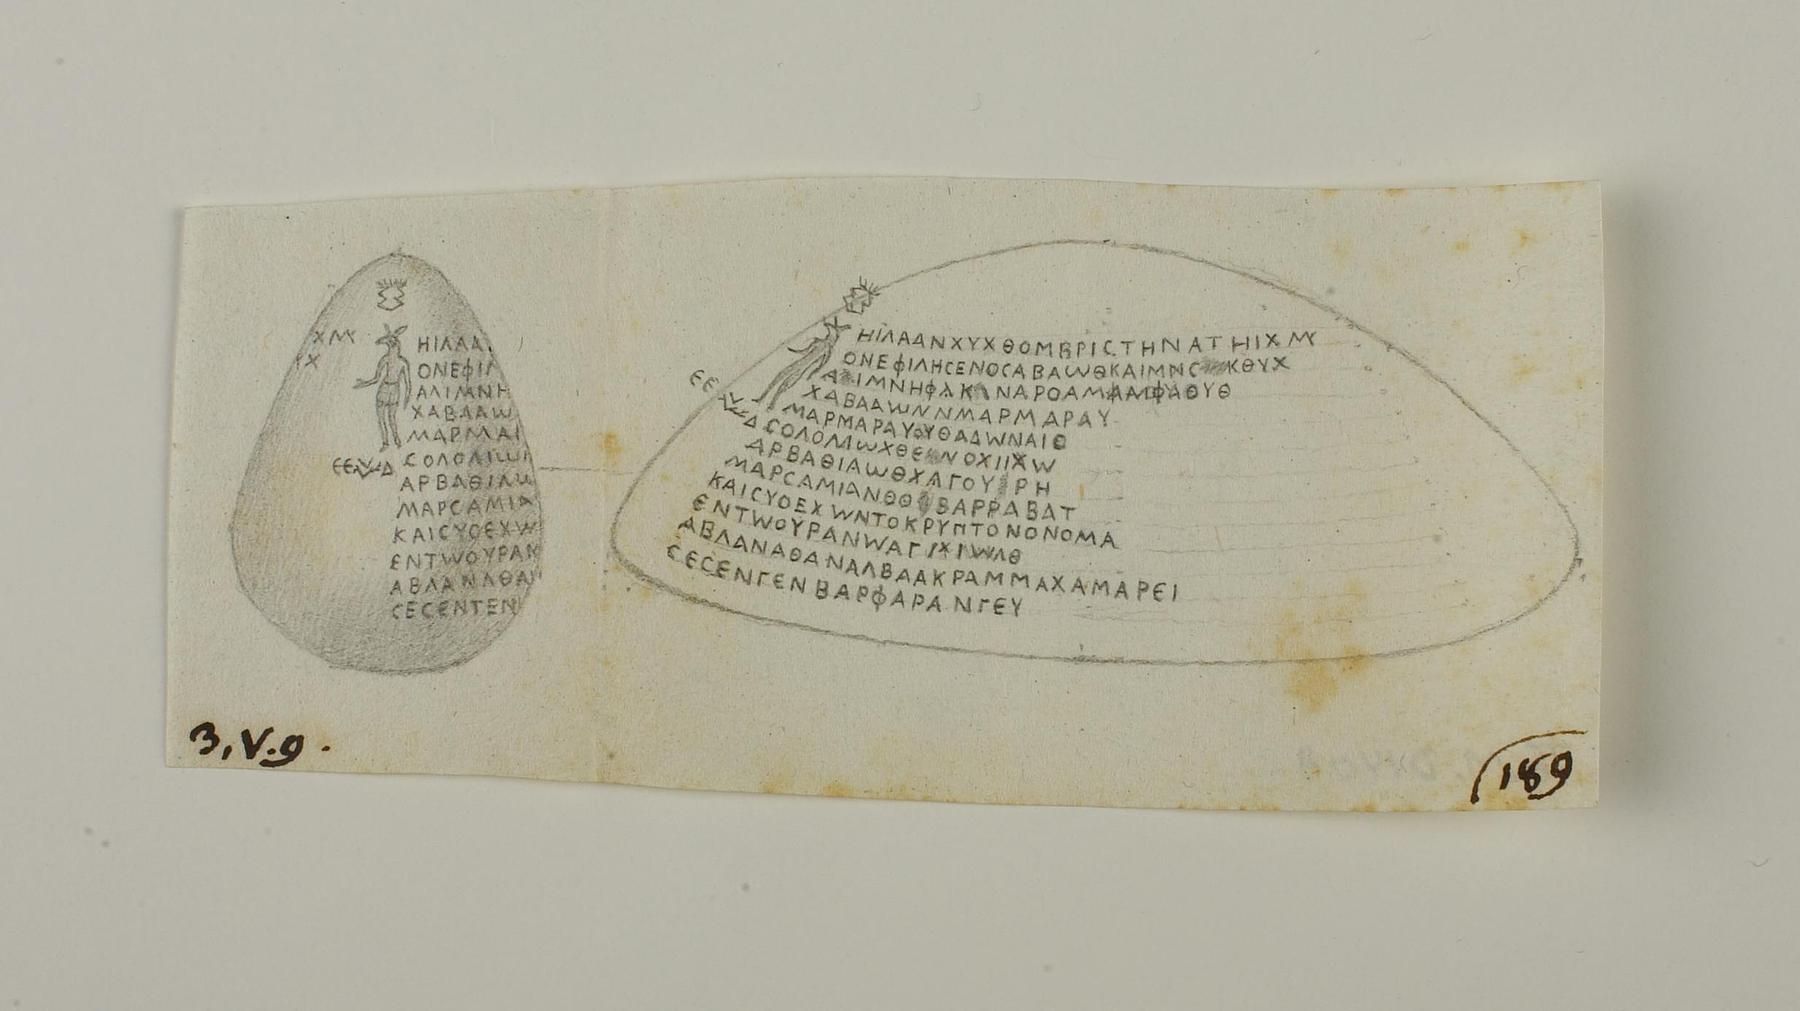 ΧΜΥ
Χ
ΗΙΛΑΑ
ΟΝΕΦΙΛ
ΑΛΙΜΝΗ
ΧΑΒΑΑΩ
ΜΑΡΜΑΙ
ϹΟΛΟΛΙΩΙ
ΑΡΒΑΘΙΛΩ
ΜΑΡϹΑΜΙΑ
ΚΑΙϹΥΟΕΧΩ
ΕΝΤΩΟΥΡΑΝ
ΑΒΛΑΝΛΘΑ
ϹΕϹΕΝΤΕΝ
ΗΙΛΑΔΝΧΥΧΘΟΜΒΡΙϹΤΗΝΑΤΗΙΧΜΥ
ΟΝΕΦΙΛΗϹΕΝΟϹΑΒΑΩΘΚΑΙΜΝϹ ΚΘΥΧ
ΧΑΒΑΑΩΝΝΜΑΡΜΑΡΑΥ
ΜΑΡΜΑΡΑΥΟΥΘΑΔΩΝΑΙΟ
ϹΟΛΟΜΩΧΘΕ ΝΟΧΙΙΧΩ
ΑΡΒΑΘΙΑΩΘΧΛΓΟΥ ΡΗ
ΜΑΡϹΑΜΙΑΝΘΘ ΒΑΡΡΑΒΑΤ
ΚΑΙϹΥΟΕΧΩΝΤΟΚΡΥΠΤΟΝΟΝΟΜΑ
ΕΝΤΩΟΥΡΑΝΩΑΓΙΧΙΩΛΘ
ΑΒΛΑΝΑΘΑΝΑΛΒΑΑΚΡΑΜΜΑΧΑΜΑΡΕΙ
ϹΕϹΕΝΓΕΝΒΑΡΦΑΡΑΝΓΕΥ
3,V.9.
189